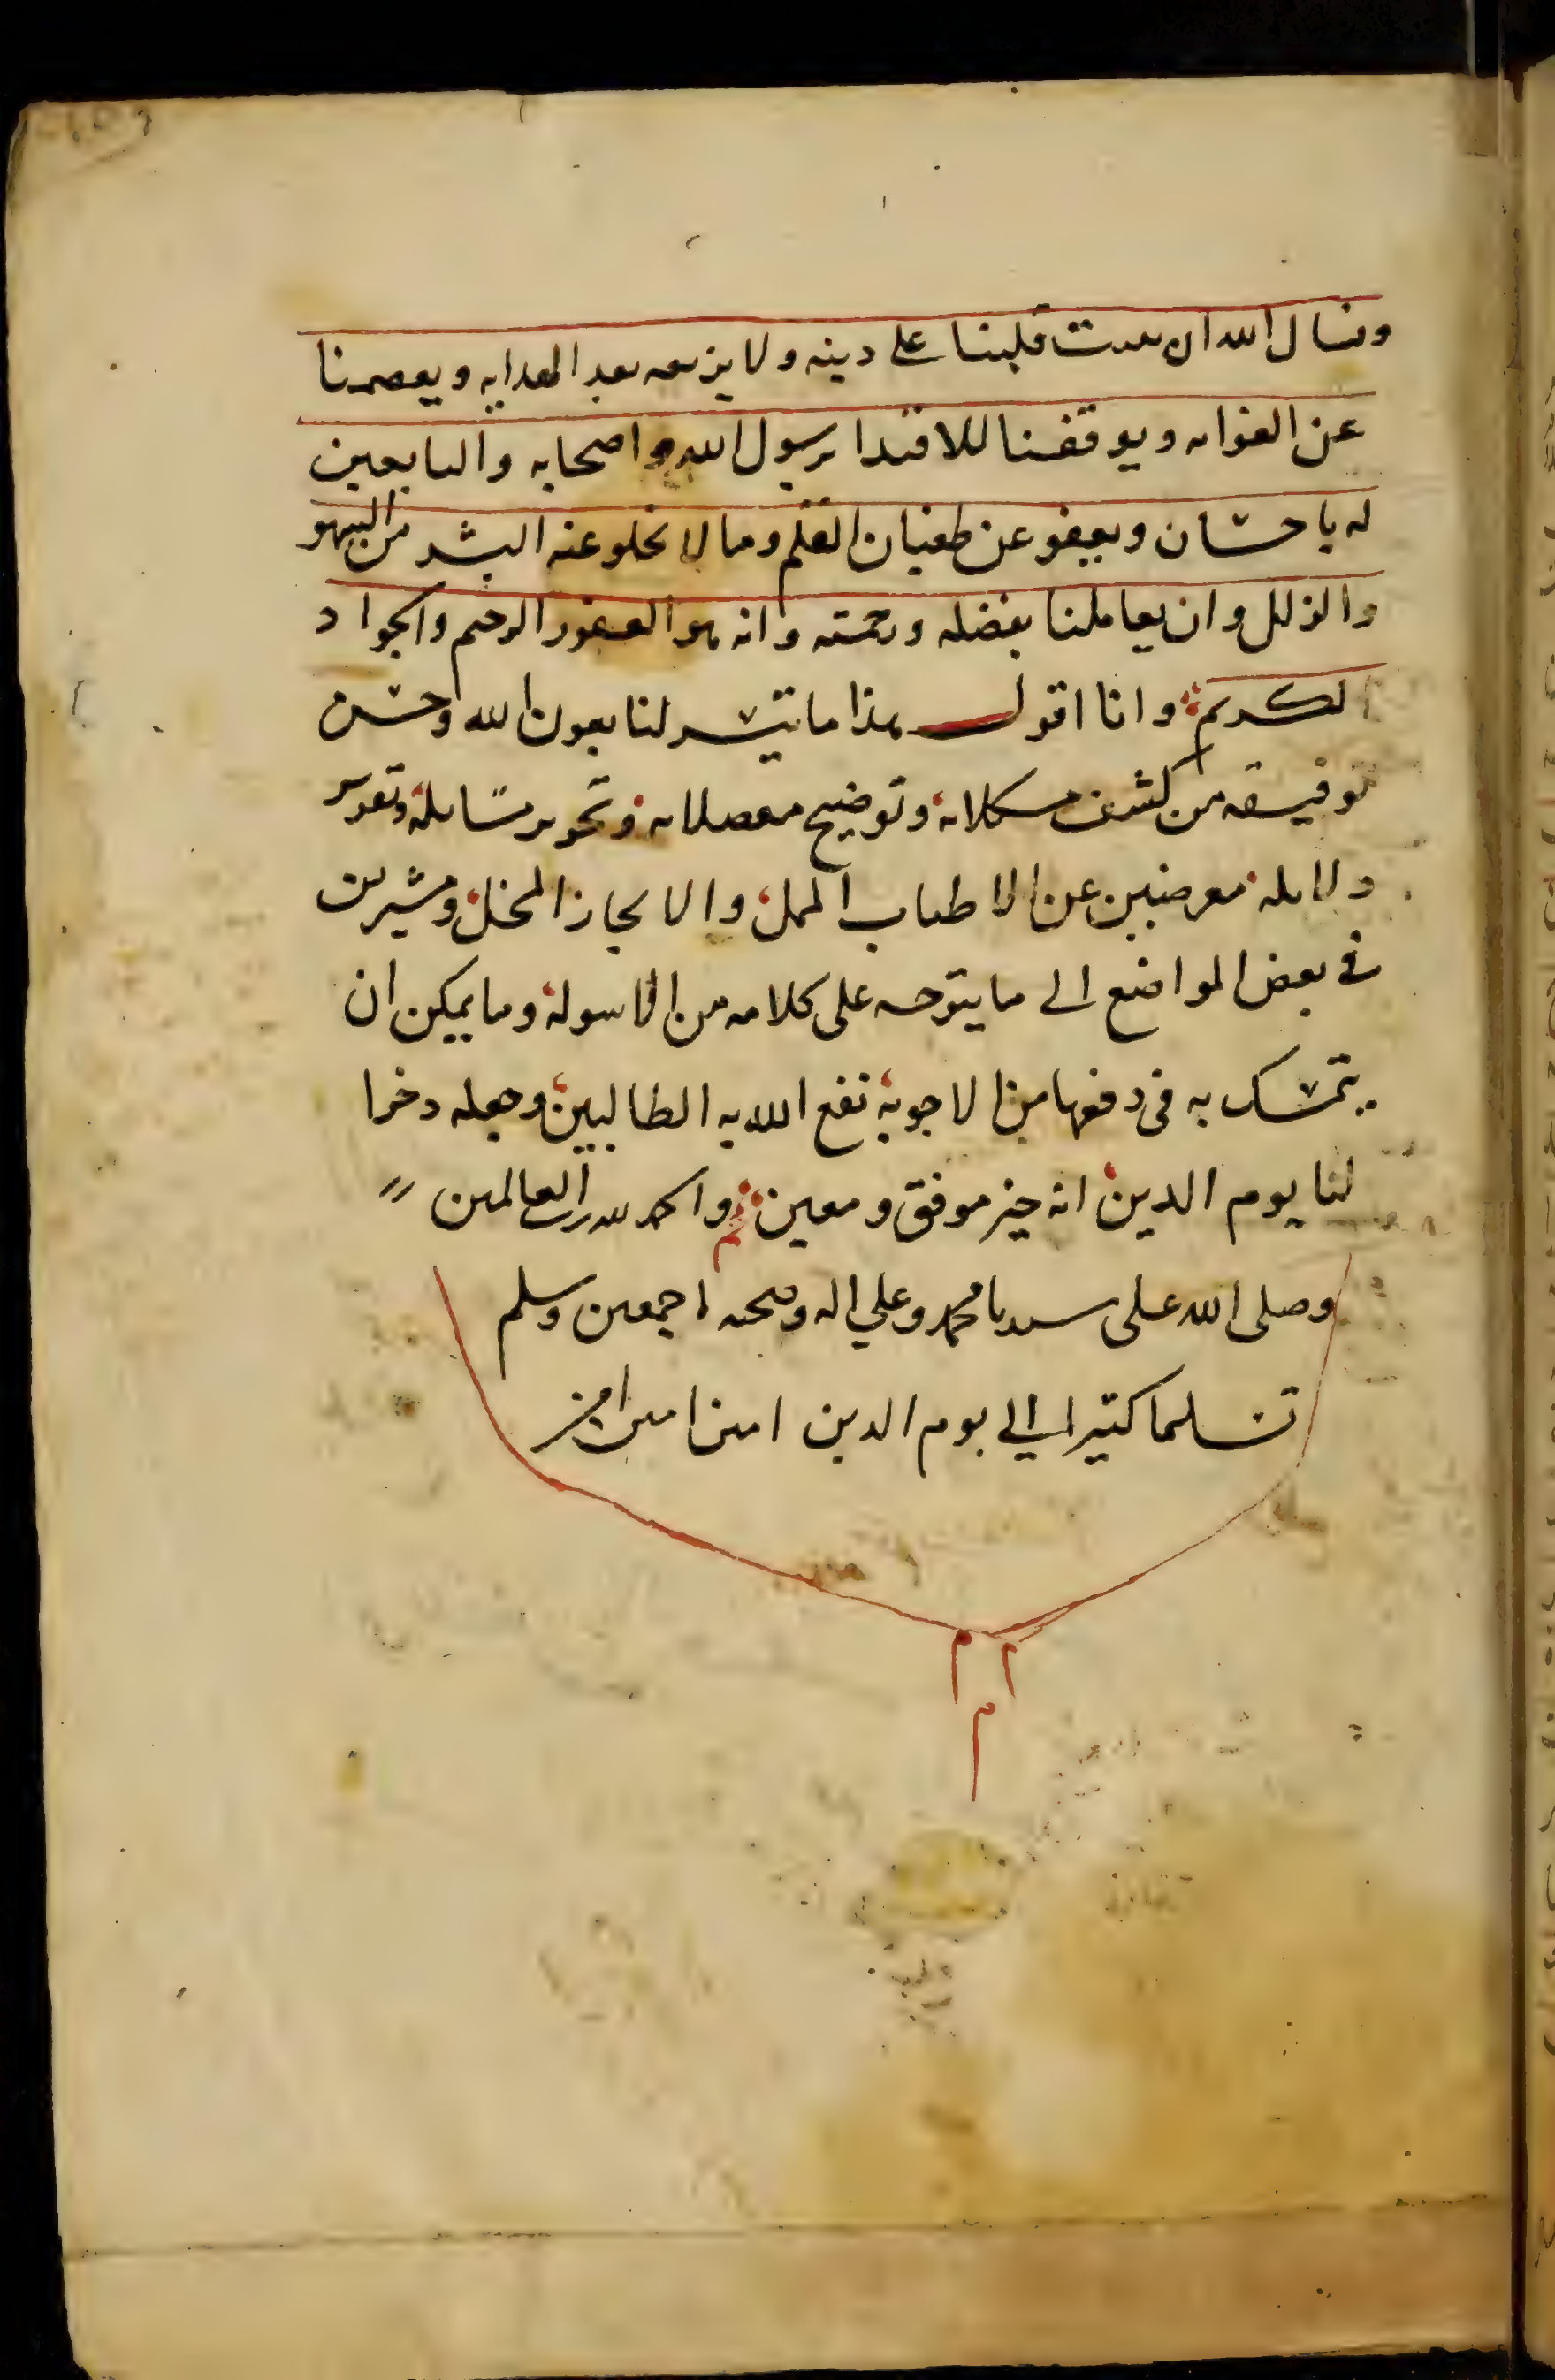 ونسال الله ان يثبت قلبنا على دينه ولا يزيغه بعد الهدايه ويعصمنا
عن الغوايه ويوفقنا للاقتدا برسول الله واصحابه والتابعين
له باحسان ويعفو عن طغيان القلم وما لا يخلو عنه البشر من السهو
والزلل وان يعاملنا بفضله ورحمته وانه هو الغفور الرحيم والجواد
الكريم وانا اقول هذا ما تيسر لنا بعون الله وحسن
توفيقه من كشف مشكلاته وتوضيح معضلاته وتحرير مسائله وتقرير
دلائله معرضين عن الاطناب الممل والايجاز المخل ومشيرين
في بعض المواضع الى ما يتوجه على كلامه من الاسولة وما يمكن ان
يتمسك به في دفعها من الاجوبة نفع الله به الطالبين وجعله ذخرا
لنا يوم الدين انه خير موفق ومعين والحمد لله رب العالمين
وصلى الله على سيدنا محمد وعلي اله وصحبه اجمعين وسلم
تسليما كثيرا الي يوم الدين امين امين امين
م م
م